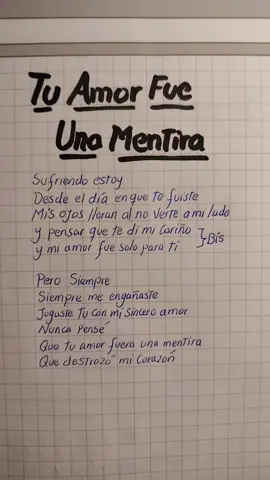 Tu Amor Fue
Una Mentira
Sufriendo estoy
Desde el día en que te fuiste
Mis ojos lloran al no verte a mi lado
y pensar que te di mi cariño
y mi amor fue solo para ti
}Bis
Pero Siempre
Siempre me engañaste
Jugaste tu con mi sincero amor
Nunca Pensé
Que tu amor fuera una mentira
Que destrozó mi corazón